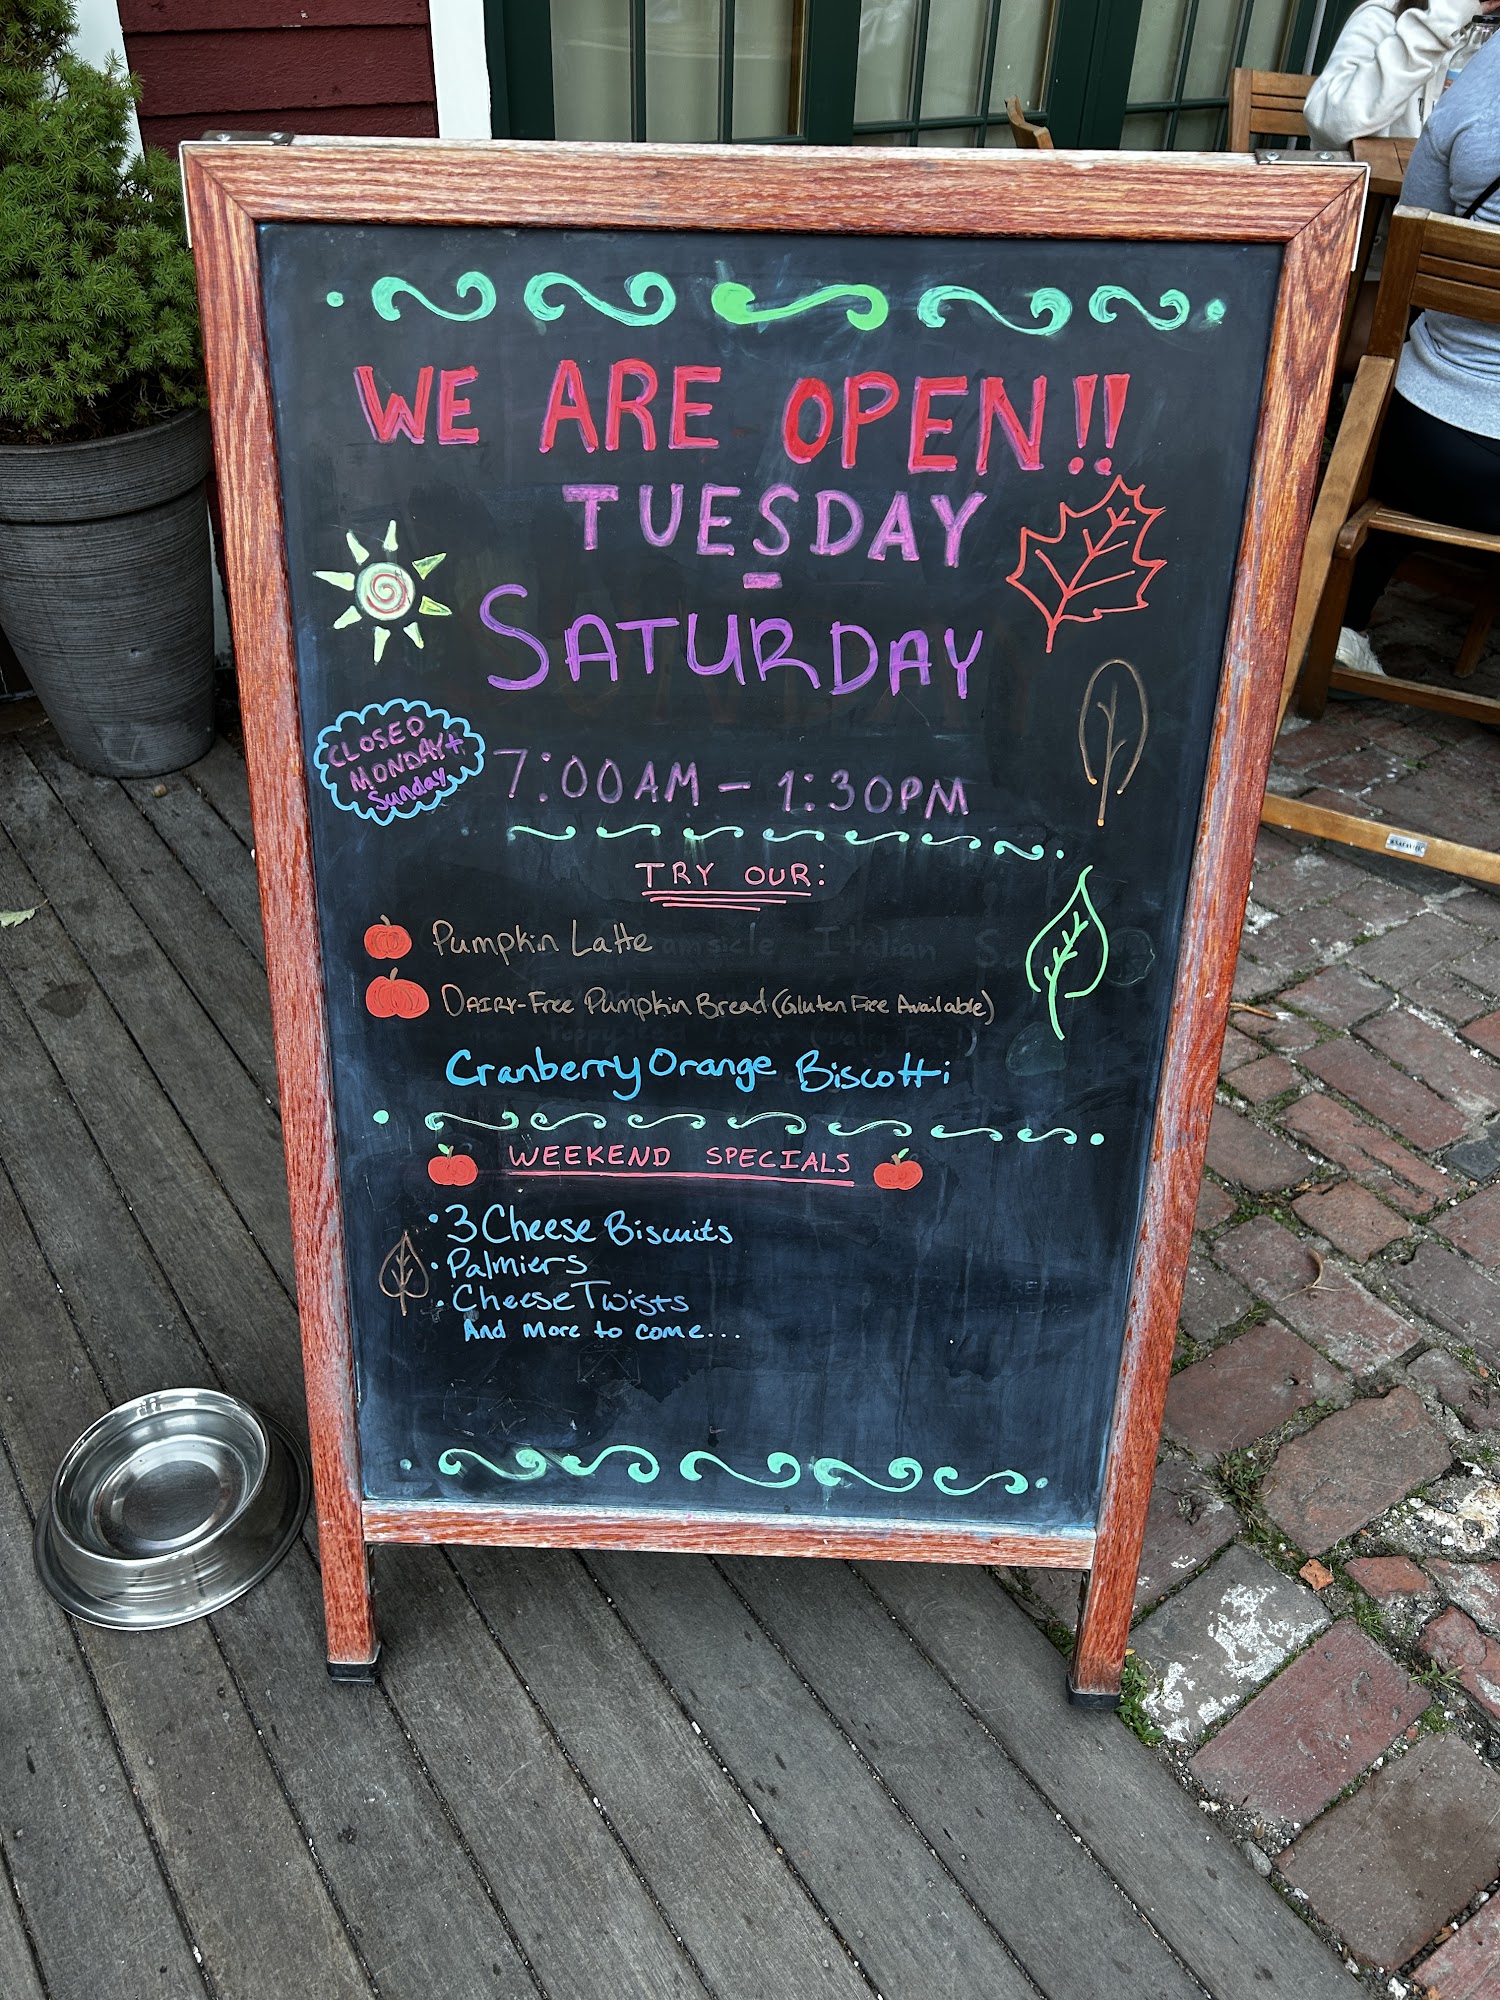 WE ARE OPEN!!
TUESDAY
-
SATURDAY
CLOSED
MONDAY +
Sunday
7:00AM - 1:30PM
TRY OUR:
Pumpkin Latte
DAIRY-Free Pumpkin Bread (Gluten Free Available)
Cranberry Orange Biscotti
WEEKEND SPECIALS
• 3 Cheese Biscuits
• Palmiers
• Cheese Twists
And More to come...